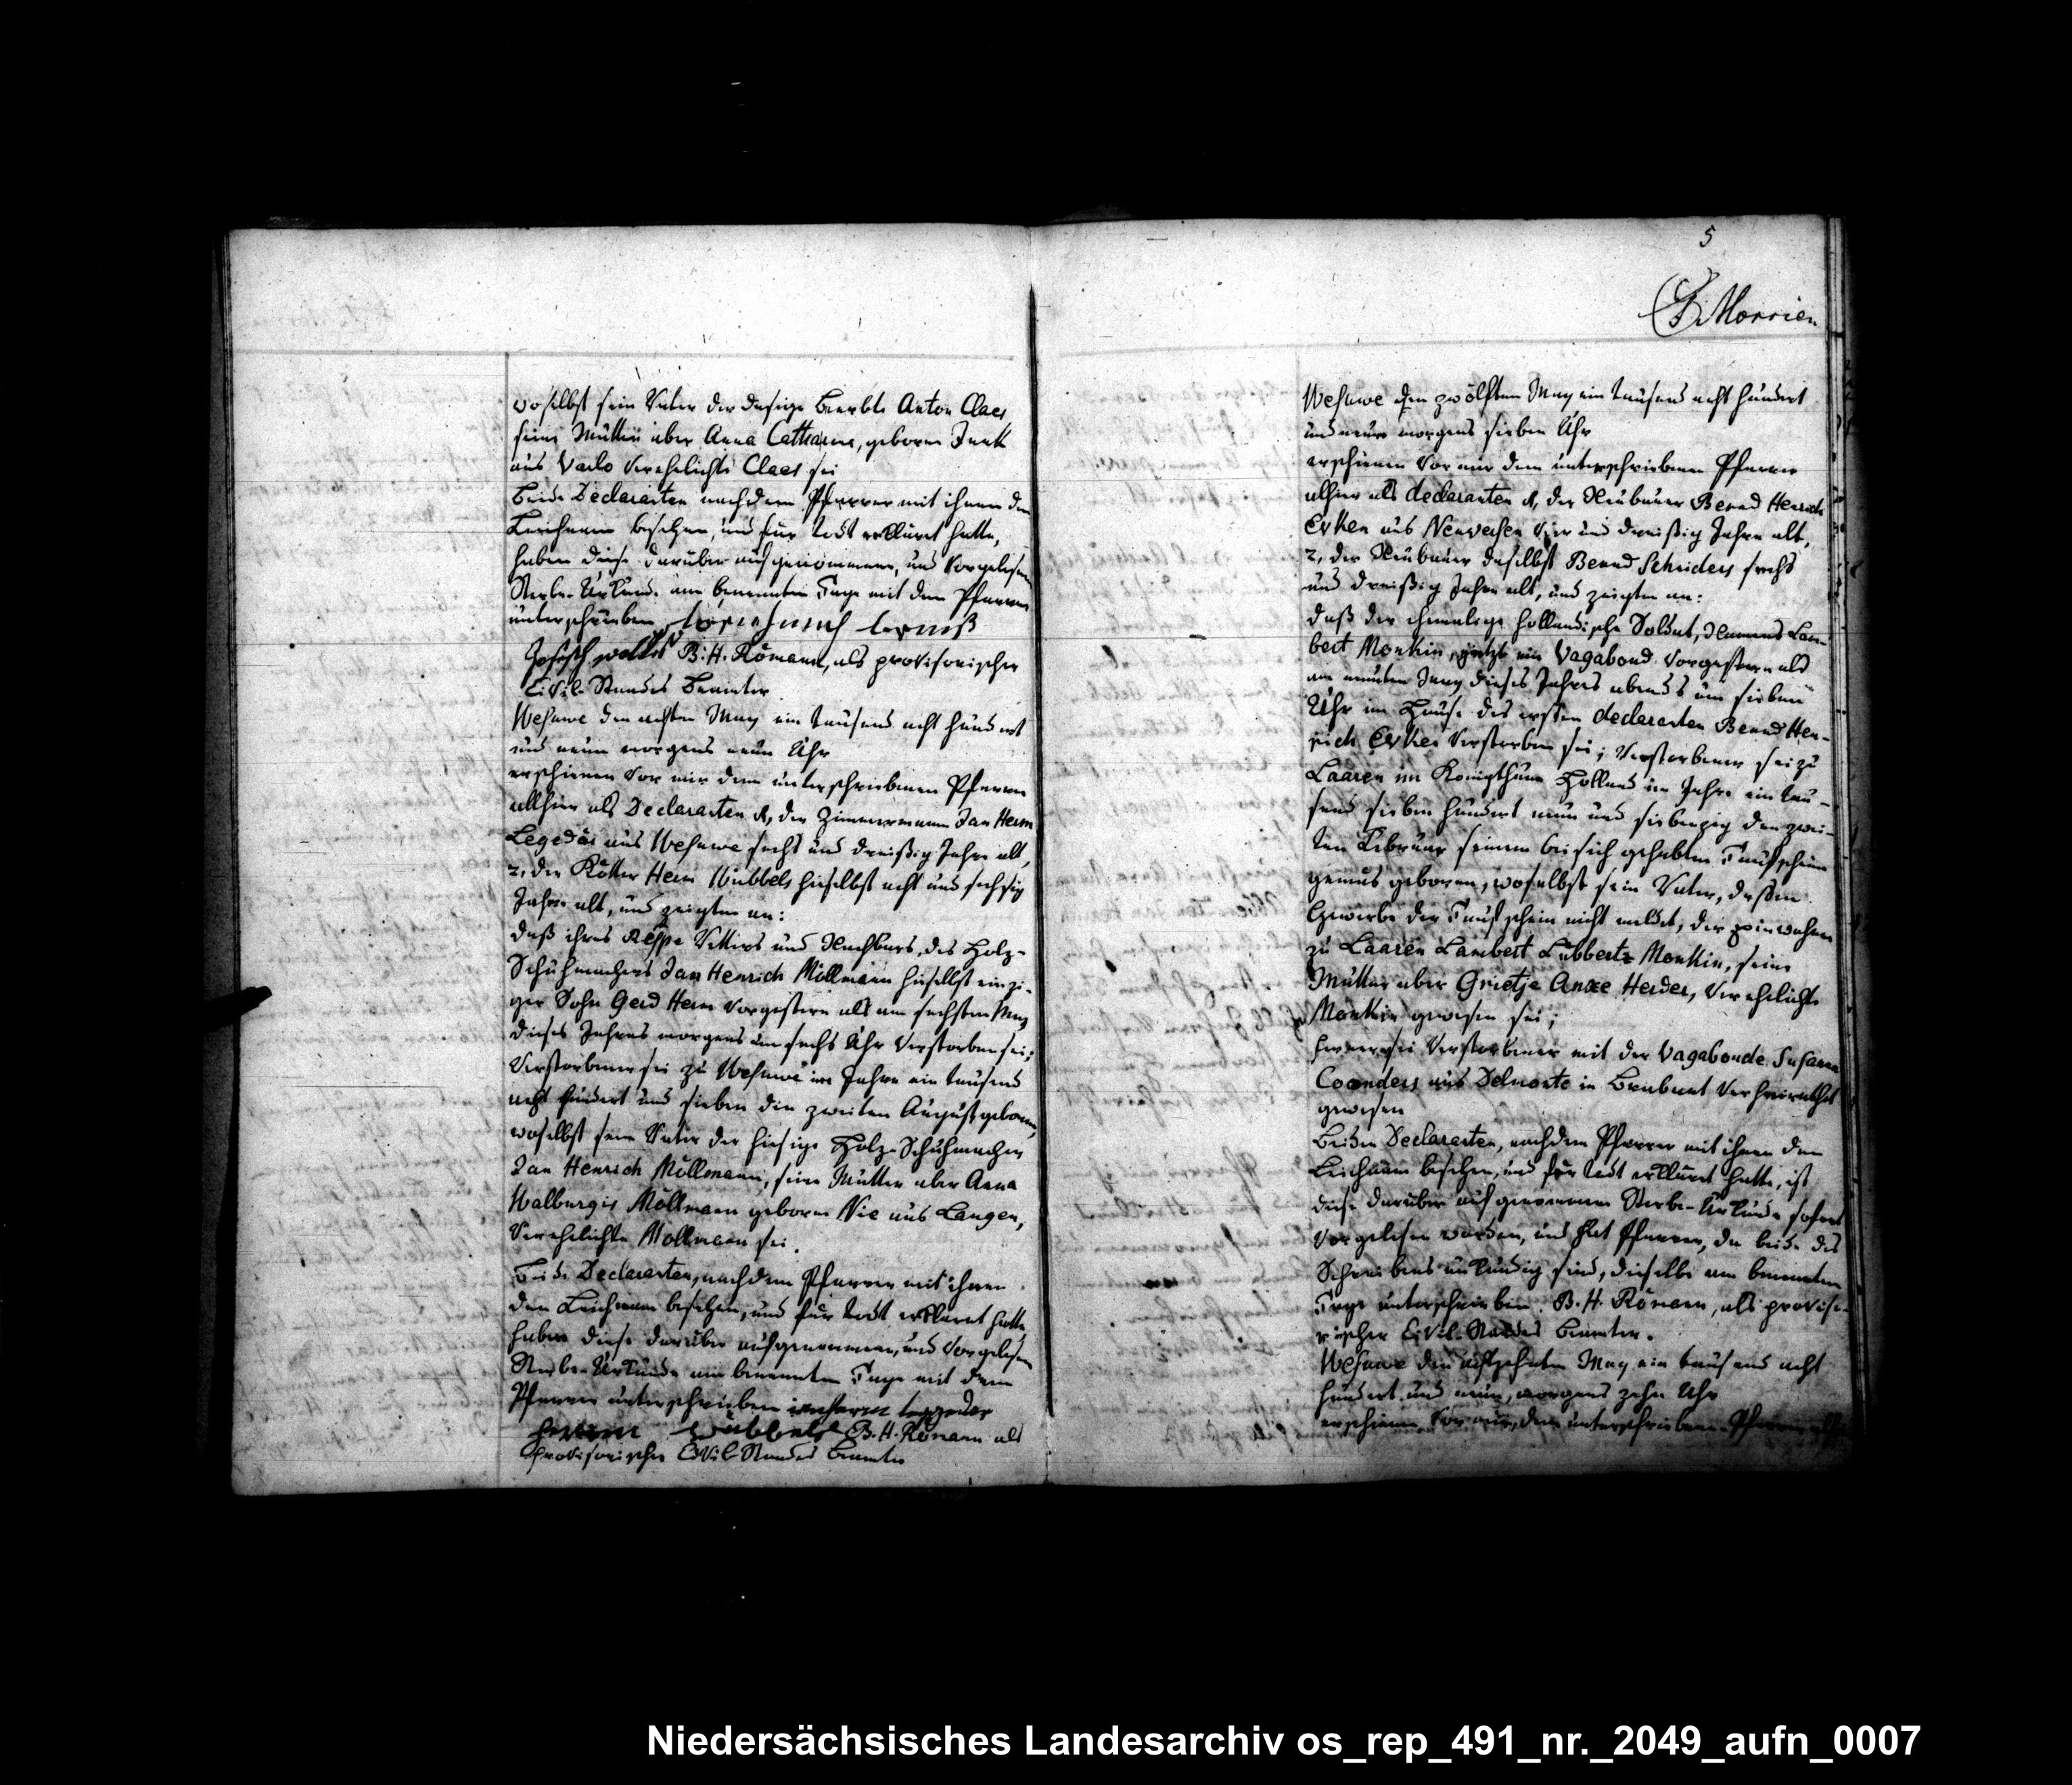 woselbst sein Vater der dasige Beerbte Anton Claes
seine Mutter aber Anna Catharina, geborne Funk
aus Varlo Verehelichte Claes sei
Beide Declaranten nachdem Pfarrer mit ihnen den
Leichnam besehen, und für todt erkläret hatte,
haben diese darüber aufgenommene, und Vorgelesene
Sterbe-Urkunde am benannten Tage mit dem Pfarrer
unterschrieben
B: H. Römann, als provisorischer
Civil-Standes Beamter
Wesuwe den achten May ein tausend acht hundert
und neun morgens neun Uhr
erschienen Vor mir dem unterschriebenen Pfarrer
allhier als Declaranten 1, der Zimmermann Jan Herm
Legedär aus Wesuwe sechs und dreißig Jahre alt,
2, der Kötter Herm Wübbels hieselbst acht und sechsig
Jahre alt, und zeigten an:
daß ihres Respe Vetters und Nachbars, des Holz-
Schuhmachers Jan Henrich Möllmann hieselbst einzi-
ger Sohn Gerd Herm Vorgestern als am sechsten May
dieses Jahres morgens um sechs Uhr Verstorben sei;
Verstorbener sei zu Wesuwe im Jahre ein tausend
acht hundert und sieben den zweiten August geboren,
woselbst sein Vater der hiesige Holz-Schuhmacher
Jan Henrich Möllmann, seine Mutter aber Anna
Walburgis Möllmann geborne Nie aus Langen,
Verehelichte Möllmann sei.
Beide Declaranten, nachdem Pfarrer mit ihnen
den Leichnam besehen, und für todt erkläret hatte
haben diese darüber aufgenommene, und Vorgelesene
Sterbe-Urkunde am benannten Tage mit dem
Pfarrer unterschrieben
wübbels B. H. Römann als
provisorischer Civil-Standes Beamter
5
Morrien
Wesuwe den zwölften May ein tausend acht hundert
und neun morgens sieben Uhr
erschienen Vor mir dem unterschriebenen Pfarrer
allhier als declaranten 1, der Neubauer Bernd Henrich
Erken aus Neuversen Vier und dreißig Jahre alt,
2, der Neubauer daselbst Bernd Schriders sechs
und dreißig Jahre alt, und zeigten an:
daß der ehemalige holländische Soldat, Namens Lam-
bert Monkin, jetzt ein Vagabond Vorgestern als
am neunten May dieses Jahres abends um sieben
Uhr im Hause des ersten declaranten Bernd Hen-
rich Erken Verstorben sei; Verstorbener sei zu
Laaren im Königthum Holland im Jahre ein tau-
send sieben hundert neun und siebenzig den zwei-
ten Februar seinem bei sich gehabten Taufschein
gemäs geboren, woselbst sein Vater, dessen
Gewerbe der Taufschein nicht meldet, der Einwohner
zu Laaren Lambert Lübberts Monkin, seine
Mutter aber Grietje Anne Herder, Verehelichte
Monkin gewesen sei;
ferner sei Verstorbener mit der Vagabonde Susanna
Coenders aus Delnorte in Brabant Verheirathet
gewesen
Beiden Declaranten, nachdem Pfarrer mit ihnen den
Leichnam besehen, und für todt erkläret hatte, ist
diese darüber aufgenommene Sterbe-Urkunde sofort
Vorgelesen worden, und hat Pfarrer, da beide des
Schreibens unkundig sind, dieselbe am benannten
Tage unterschrieben. B. H. Römann, als proviso-
rischer Civil-Standes Beamter.
Wesuwe den achtzehnten May ein tausend acht
hundert und neun, morgens zehn Uhr
erschienen Vor mir, dem unterschriebenen Pfarrer
Niedersächsisches Landesarchiv os_rep_491_nr._2049_aufn_0007